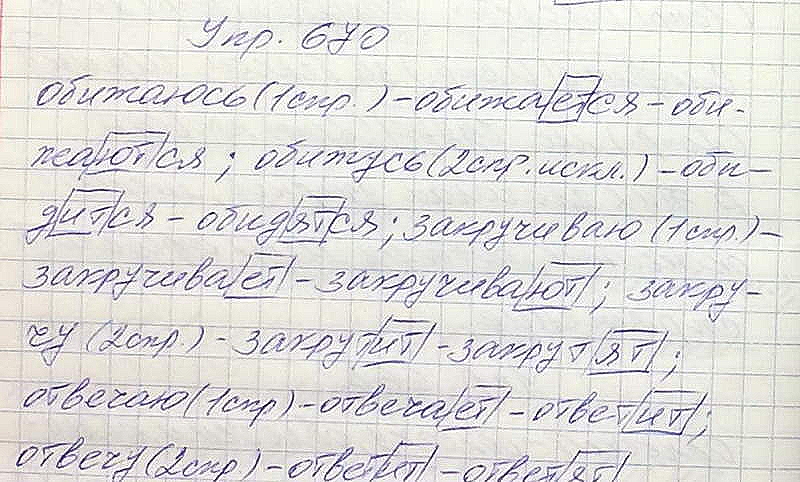 Упр. 670
обижаюсь (1 спр.) – обижается – оби-
жаются; обижусь (2 спр. искл.) – оби-
дится – обидятся; закручиваю (1 спр.) –
закручивает – закручивают; закру-
чу (2 спр.) – закрутит – закрутят;
отвечаю (1 спр) – отвечает – ответит;
отвечу (2 спр) – ответит – ответят